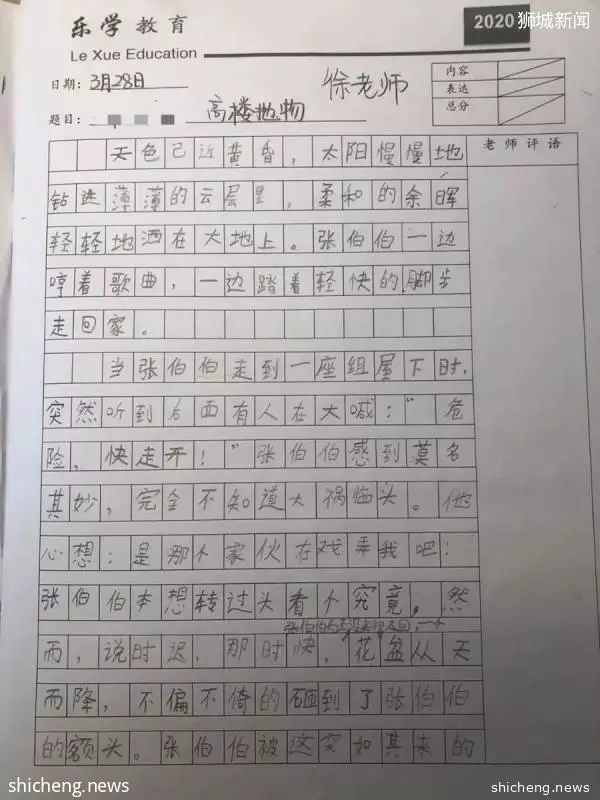 乐学教育
Le Xue Education
2020
狮城新闻
日期：3月28日
徐老师
内容
表达
总分
题目：高楼抛物
老师评语
天色已近黄昏，太阳慢慢地
钻进薄薄的云层里，柔和的余晖
轻轻地洒在大地上。张伯伯一边
哼着歌曲，一边踏着轻快的脚步
走回家。
当张伯伯走到一座组屋下时，
突然听到后面有人在大喊："危
险，快走开！"张伯伯感到莫名
其妙，完全不知道大祸临头。他
心想：是那个家伙在戏弄我吧！
张伯伯本想转过头看个究竟，然
张伯伯还没来得及回，一个
而，说时迟，那时快，花盆从天
而降，不偏不倚的砸到了张伯伯
的额头。张伯伯被这突如其来的
shicheng.news
shicheng.news